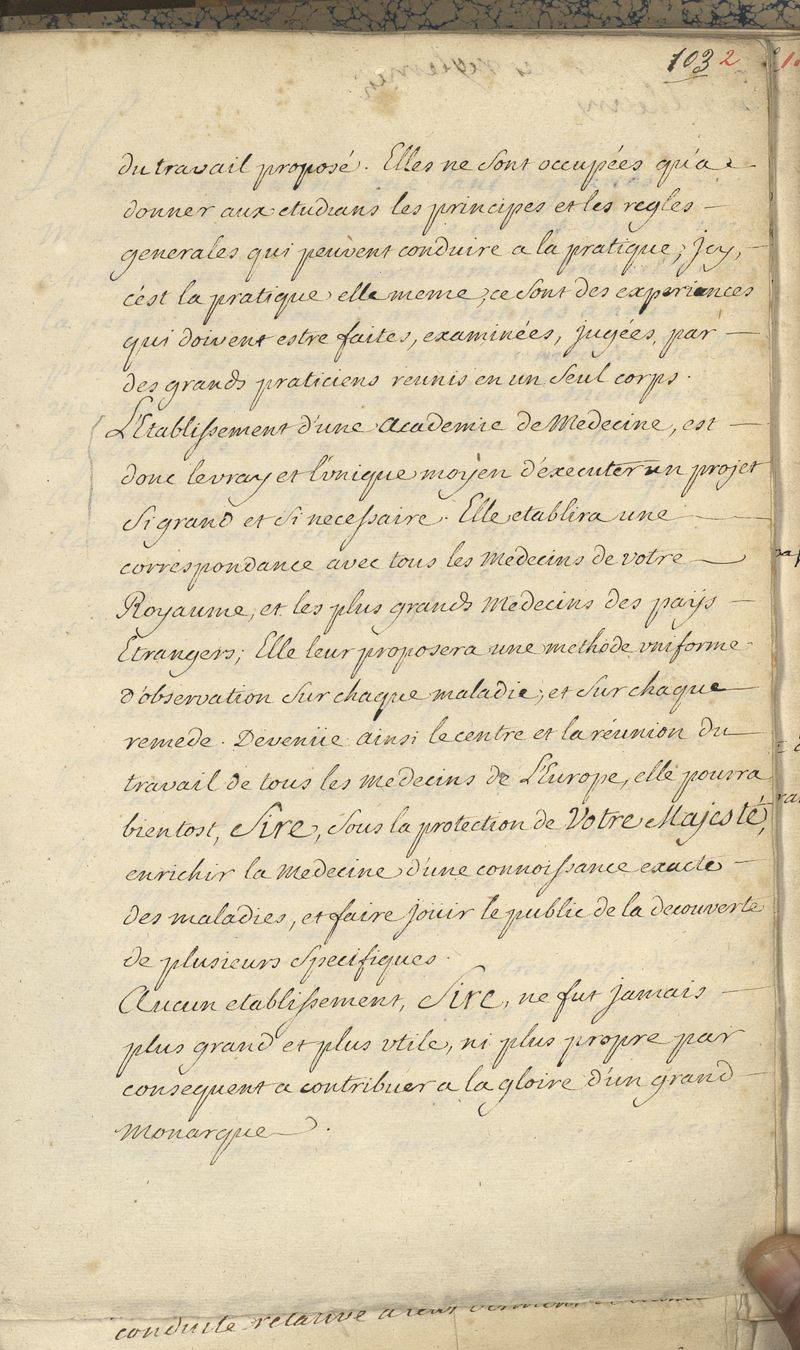 103 2
du travail proposé. Elles ne sont occupées qu'a
donner aux etudians les principes et les regles —
generales qui peuvent conduire a la pratique; Jcy, —
c'est la pratique elle meme, ce sont des experiances
qui doivent estre faites, examinées, jugées, par —
des grands praticiens reunis en un seul corps.
L'Etablissement d'une academie de Medecine, est —
donc le vray et l'vnique moyen d'executer un projet
si grand et si necessaire. Elle etablira une —
correspondance avec tous les Medecins de votre —
Royaume, et les plus grands Medecins des païs —
Etrangers; Elle leur proposera une methode vniforme
d'observation sur chaque maladie, et sur chaque —
remede. Devenüe ainsi le centre et la réunion du —
travail de tous les medecins de L'Europe, elle pourra
bientost, Sire, sous la protection de Votre Majesté,
enrichir la Medecine d'une connoissance exacte —
des maladies, et faire joüir le public de la decouverte
de plusieurs specifiques.
Aucun etablissement, Sire, ne fut jamais —
plus grand et plus vtile, ni plus propre par
consequent a contribuer a la gloire d'un grand —
Monarque.
conduite relative a leur